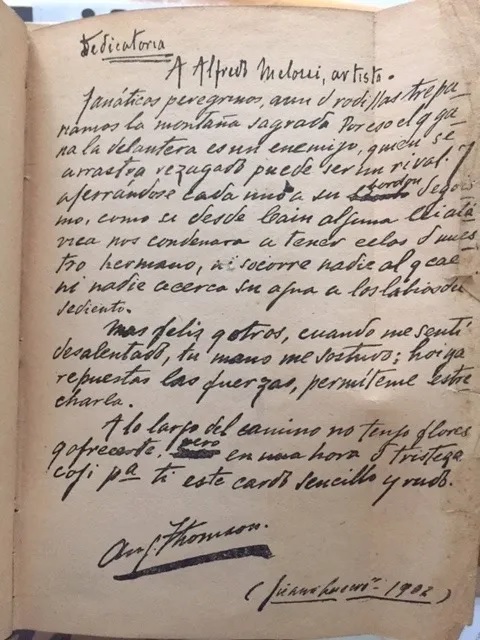 Dedicatoria
A Alfredo Melossi, artista.
Fanáticos peregrinos, aun d rodillas trepa-
ramos la montaña sagrada. Por eso el q ga-
na la delantera es un enemigo, quien se
arrastra rezagado puede ser un rival. I
aferrándose cada uno a su cordon d egois-
mo, como si desde Cain alguna lei atá-
vica nos condenara a tener celos d nues-
tro hermano, ni socorre nadie al q cae
ni nadie acerca su agua a los lábios du
sediento.
Mas feliz q otros, cuando me sentí
desalentado, tu mano me sostuvo; hoi ya
repuestas las fuerzas, permíteme estre
charla.
A lo largo del camino no tengo flores
q ofrecerte, pero en una hora d tristeza
coji pa ti este cardo sencillo y rudo.
Aug. Thomson.
1902)